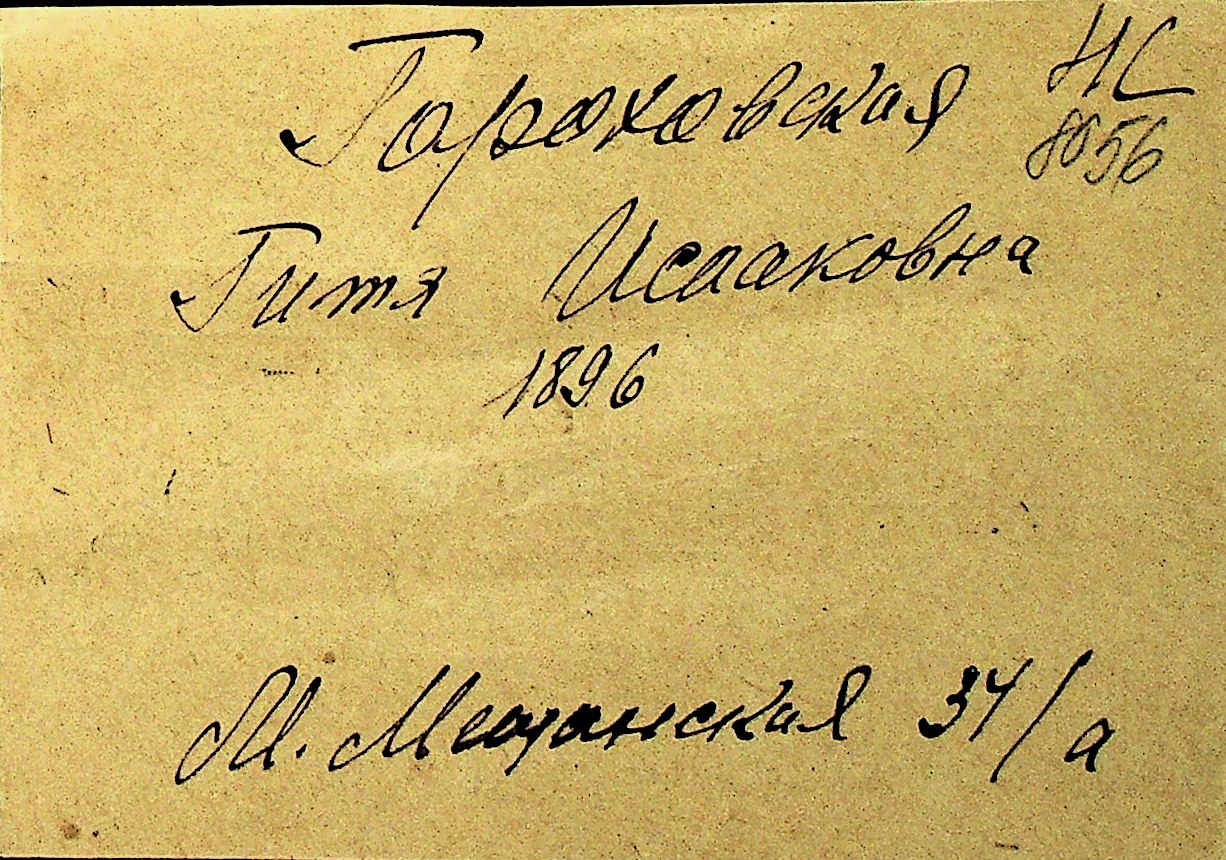 Гороховская НС
8056
Гитя Исааковна
1896
М. Мещанская 34/а